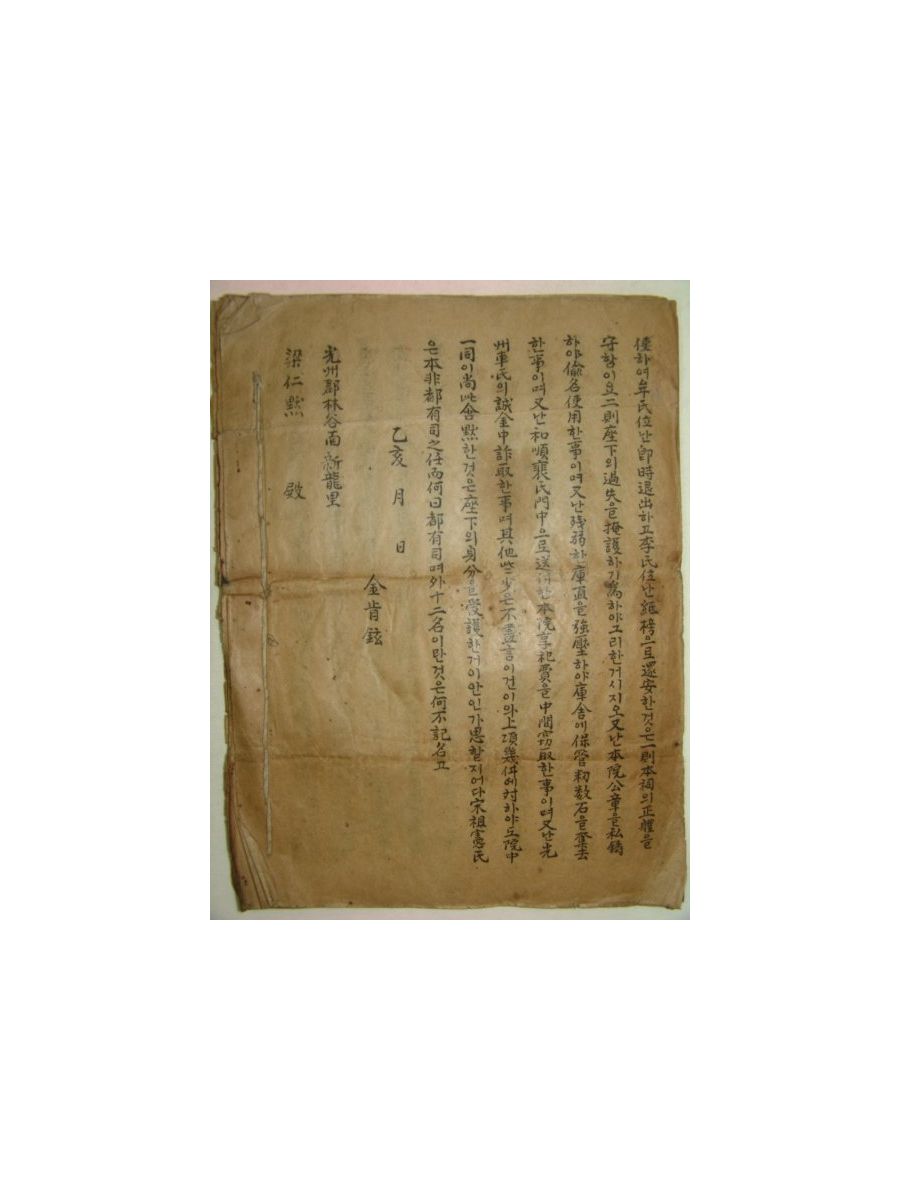 僅하여牟氏位난卽時退出하고李氏位난紙榜으로還安한것은一則本祠의正體을
守함이오二則座下의過失을掩護하기爲하야그리한거시지오又난本院公章을私鑄
하야偸名使用한事이며又난殘弱한庫直을強壓하야庫舍에保管籾数石을奪去
한事이며又난和順裵氏門中으로送付한本院享祀費을中間窃取한事이며又난光
州車氏의誠金中詐取한事며其他些少은不盡言이건이와上項幾件에対하야도院中
一同이尙此含黙한것은座下의身分을愛護한거이안인가思할지어다宋祖憲氏
은本非都有司之任而何曰都有司며外十二名이란것은何不記名고
乙亥 月 日
金肯鉉
光州郡林谷面新龍里
梁仁黙 殿